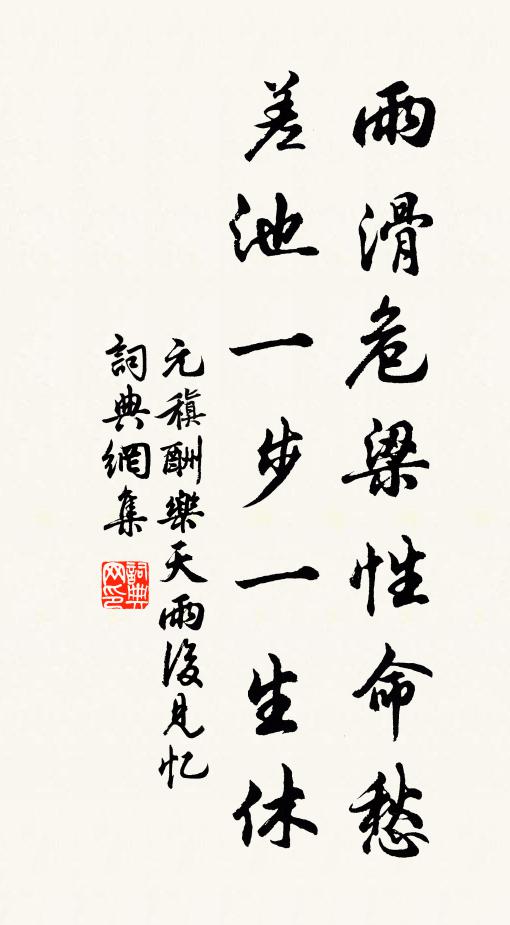 雨滑危梁性命愁
差池一步一生休
元稹酬樂天雨後見忆
詞典網集
詞典网印